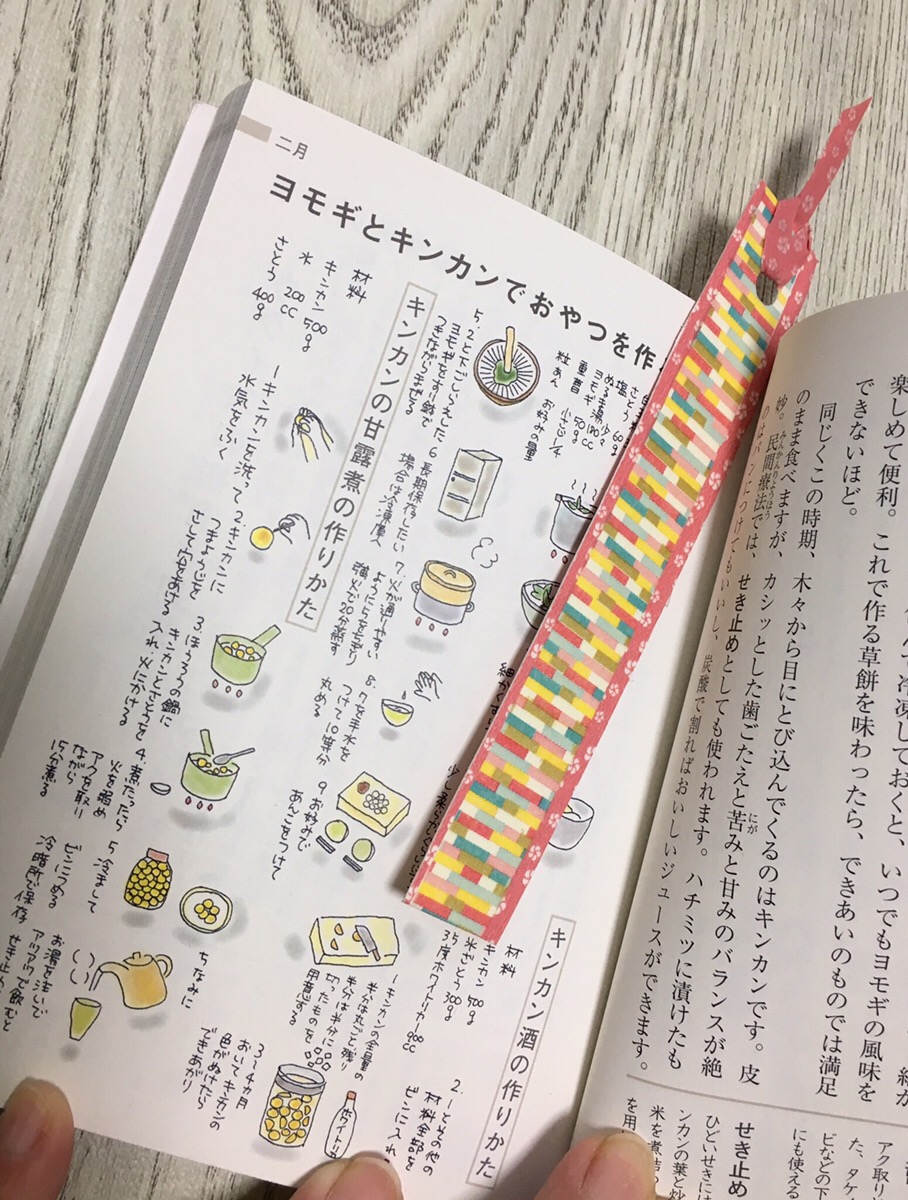 二月
ヨモギとキンカンでおやつを作
さとう 60g
塩 少々
ぬるま湯 180cc
ヨモギ 50g
重曹 小さじ1/4
粒あん お好みの量
5.2と下ごしらえした
ヨモギをすり鉢で
つきながらまぜる
6 長期保存したい
場合は冷凍庫へ
7.火が通りやすい
ようにたねをちぎり
強火で20分蒸す
8.
7を手水を
つけて10等分
丸める
9 お好みで
あんこをつけて
キンカンの甘露煮の作りかた
材料
キンカン 500g
水 200cc
さとう 400g
1 キンカンを洗って
水気をふく
2.キンカンに
つまようじを
さして穴をあける
3.ほうろうの鍋に
キンカンとさとうを
入れ火にかける
4.煮たったら
火を弱め
アクを取り
ながら
15分煮る
5 冷まして
ビンにつめる
冷暗所で保存
ちなみに
お湯を注いで
アツアツで飲むと
せき止め
キンカン酒の作りかた
材料
キンカン 500g
氷ざとう 300g
35度ホワイトリカー 900cc
1 キンカンの全量の
半分は丸ごと残り
半分は半分に
切ったものを
用意する
2.1とその他の
材料全部を
ビンに入れ
3 3〜4ヵ月
おいてキンカンの
色がぬけたら
できあがり
楽しめて便利。これで作る草餅を味わったら、できあいのものでは満足
できないほど。
同じくこの時期、木々から目にとび込んでくるのはキンカンです。皮
のまま食べますが、カシッとした歯ごたえと苦みと甘みのバランスが絶
妙。民間療法では、せき止めとしても使われます。ハチミツに漬けたも
のはパンにつけてもいいし、炭酸で割ればおいしいジュースができます。
せき止め
ひどいせきに
ンカンの葉と炒
米を煮詰
を用
アク取り
た、タケ
ビなどの下
にも使える